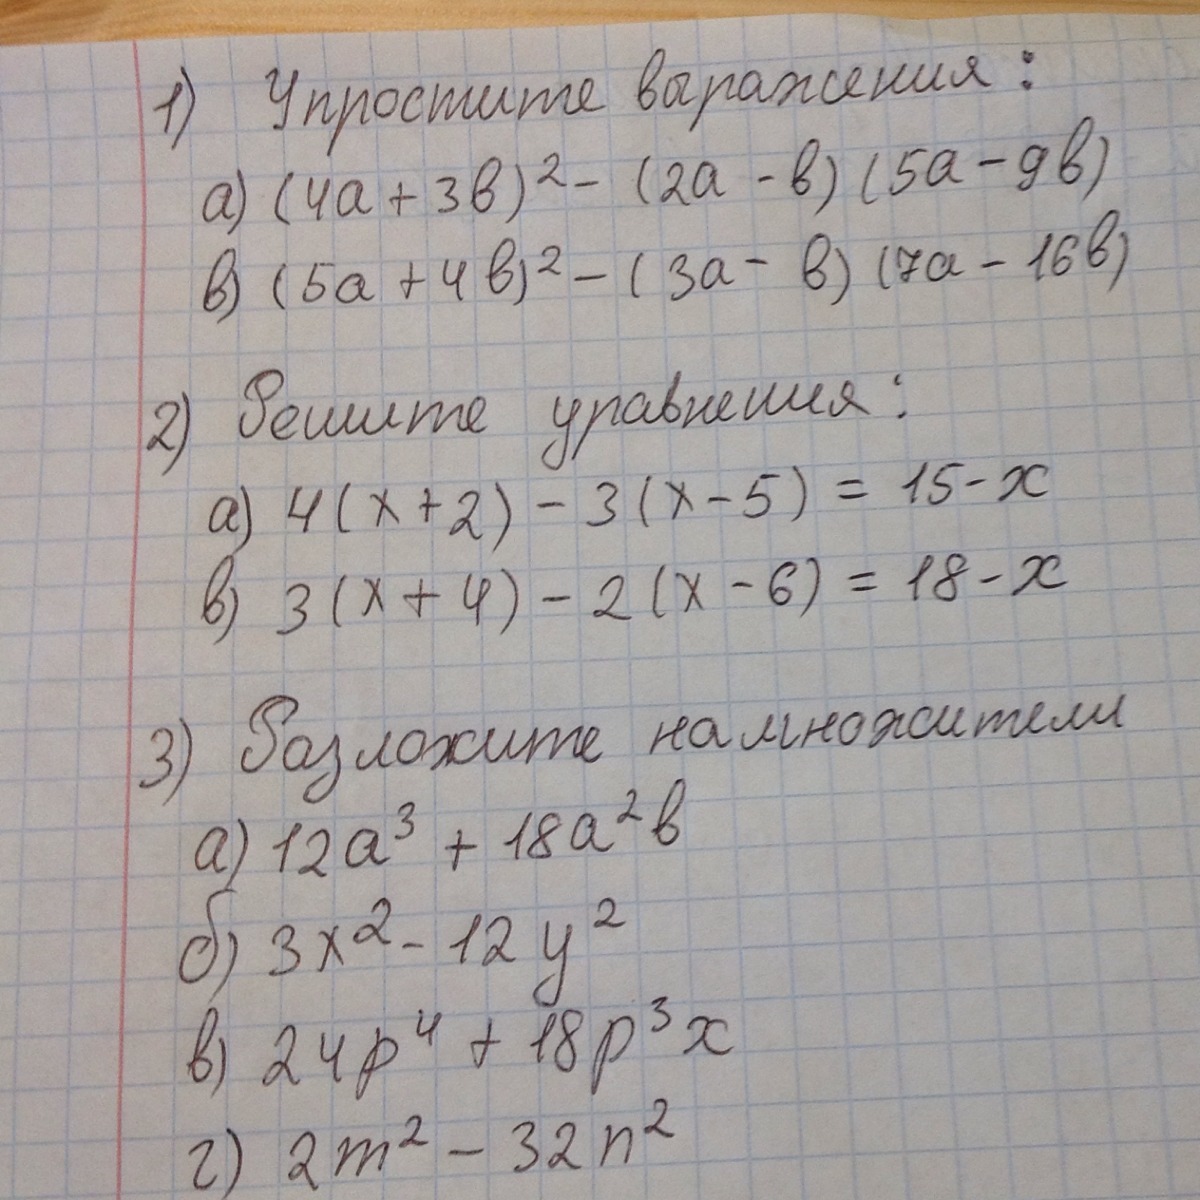 1) Упростите выражения:
а) (4а + 3в)² - (2а - в) (5а - 9в)
в) (5а + 4в)² - (3а - в) (7а - 16в)
2) Решите уравнения:
а) 4(х + 2) - 3(х - 5) = 15 - х
в) 3(х + 4) - 2(х - 6) = 18 - х
3) Разложите на множители
а) 12а³ + 18а²в
б) 3х² - 12у²
в) 24р⁴ + 18р³х
г) 2m² - 32n²